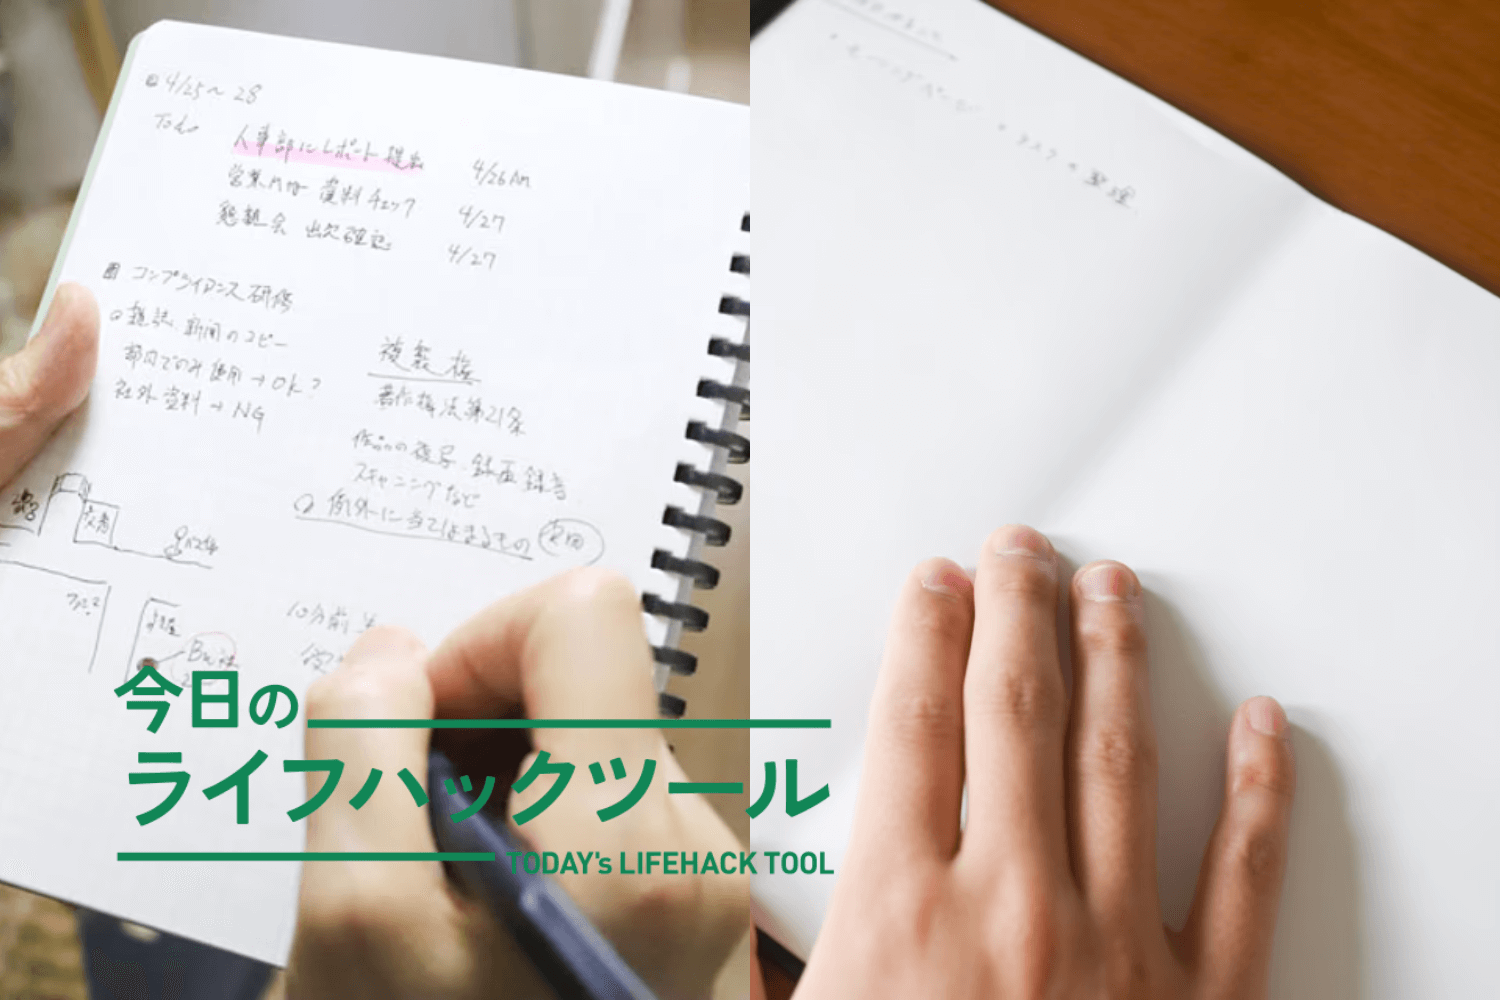 4/25〜28
To do
人事部にレポート提出 4/26 AM
営業Mtg 資料チェック 4/27
懇親会 出欠確認 4/27
コンプライアンス研修
雑誌、新聞のコピー
部内でのみ使用→OK?
社外資料→NG
複製権
著作権法第21条
作品の複写、録画録音
スキャニングなど
例外に当てはまるもの 次回
交番
バス停
10分前
今日の
ライフハックツール
TODAY's LIFEHACK TOOL
タスクの整理